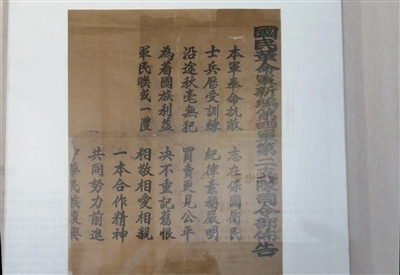 國民革命軍新編第四軍第二支隊司令部佈告
本軍奉命抗敵 志在保國衛民
士兵歷受訓練 紀律素稱嚴明
沿途秋毫無犯 買賣更見公平
為着國族利益 决不重記舊恨
軍民一 相敬相愛相親
一本合作精神
共同努力前進
華民族復興